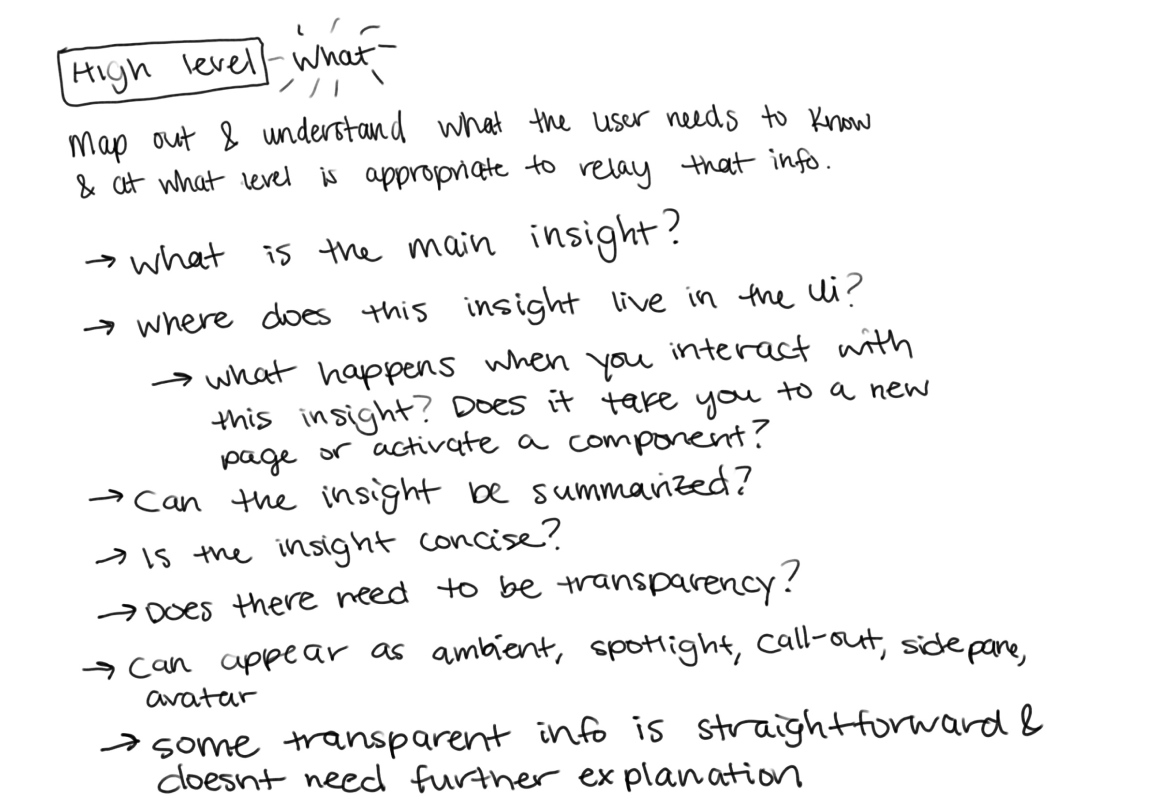 High level - What
Map out & understand what the user needs to know
& at what level is appropriate to relay that info.
→ What is the main insight?
→ Where does this insight live in the Ui?
→ what happens when you interact with
this insight? Does it take you to a new
page or activate a component?
→ Can the insight be summarized?
→ Is the insight concise?
→ Does there need to be transparency?
→ Can appear as ambient, spotlight, call-out, side pane,
avatar
→ some transparent info is straightforward &
doesnt need further explanation